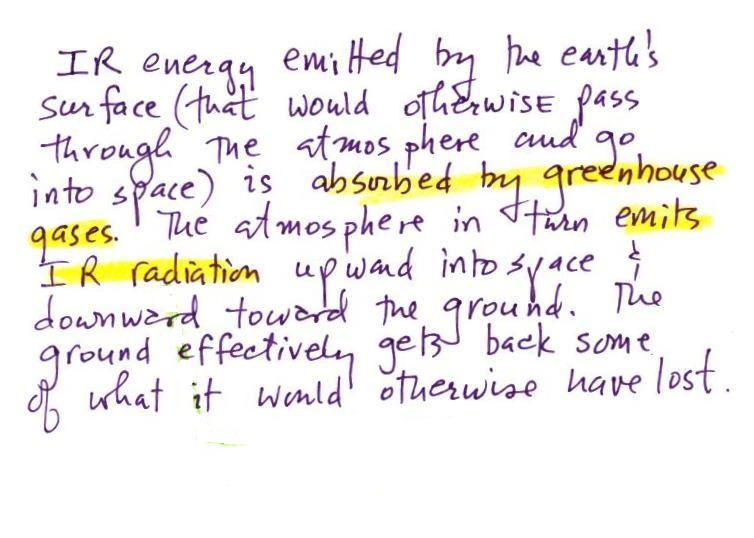 IR energy emitted by the earth's
surface (that would otherwise pass
through the atmosphere and go
into space) is absorbed by greenhouse
gases. The atmosphere in turn emits
IR radiation upward into space &
downward toward the ground. The
ground effectively gets back some
of what it would otherwise have lost.